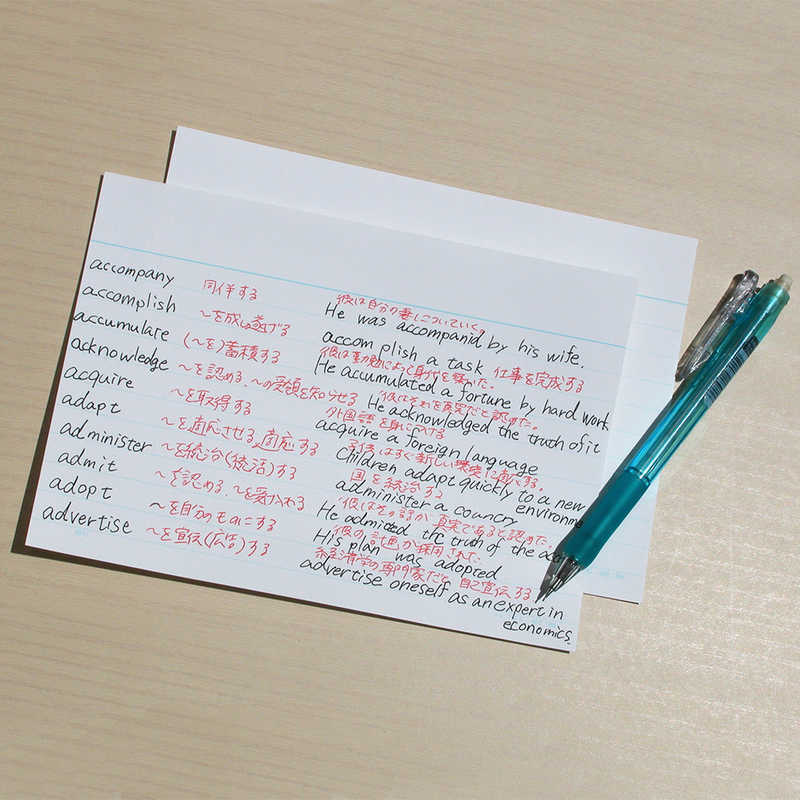 accompany 同伴する
彼は自分の妻についていく。
He was accompanid by his wife.
accomplish ～を成し遂げる
accom plish a task 仕事を完成する
accumulate (～を)蓄積する
彼は勤勉によって身代を築いた。
He accumulated a fortune by hard work
acknowledge ～を認める、～の受領を知らせる
彼はそれを真実だと認めた。
He acknowledged the truth of it
acquire ～を取得する
外国語を身に入る
acquire a foreign language
adapt ～を適応させる、適応する
子供はすぐ新しい環境に
Children adapt quickly to a new
environme
administer ～を統治(統活)する
国を統治する
administer a country
admit ～を認める、～を受け入れる
彼はその話が真実であると認めた
He admitted the truth of the
adopt ～を自分のものにする
彼の計画が採用された
His plan was adopted
advertise ～を宣伝(広告)する
経済学の専門家だと自己宣伝する
advertise oneself as an expert in
economics.